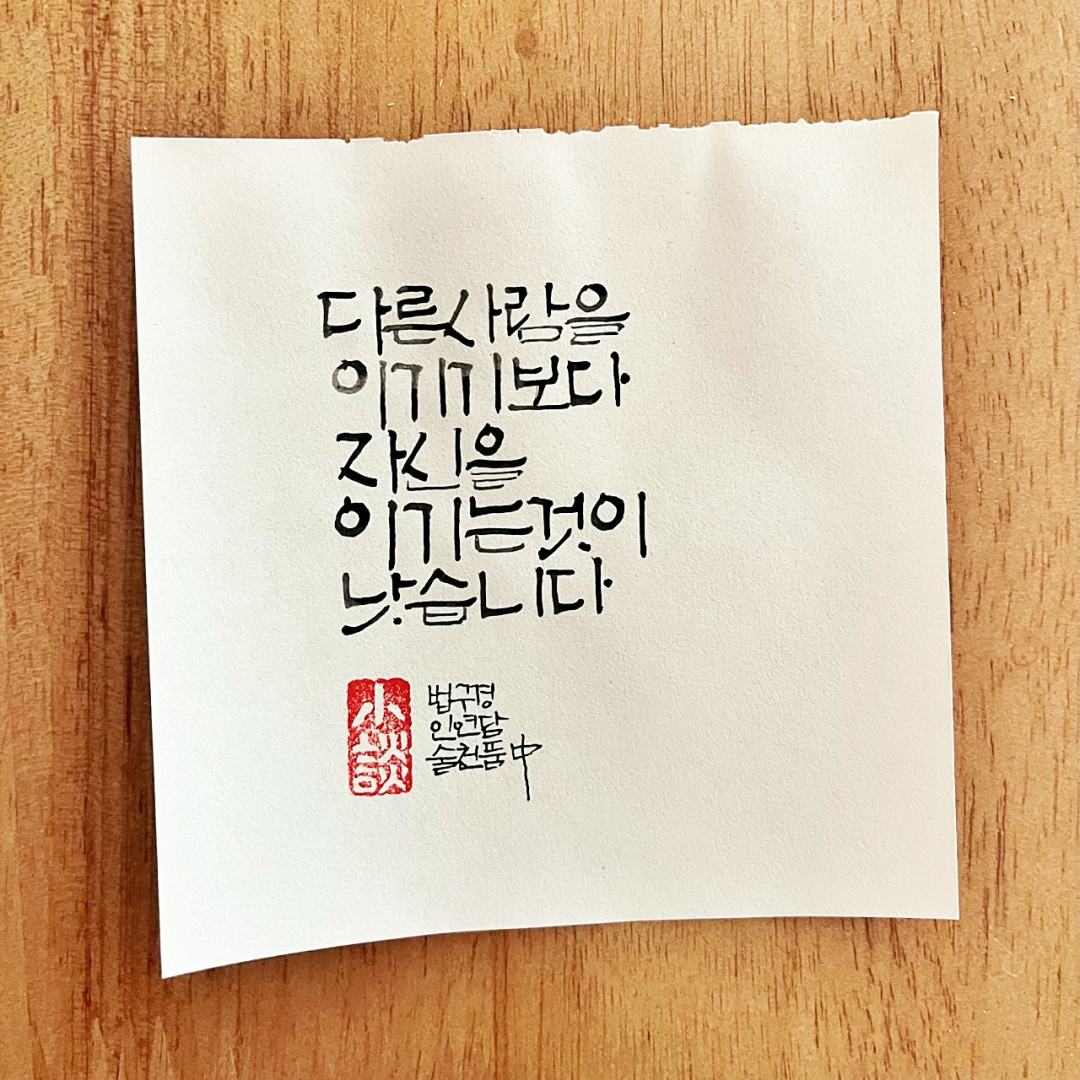 다른사람을
이기기보다
자신을
이기는것이
낫습니다
小談
법구경
인연담
술천품 中